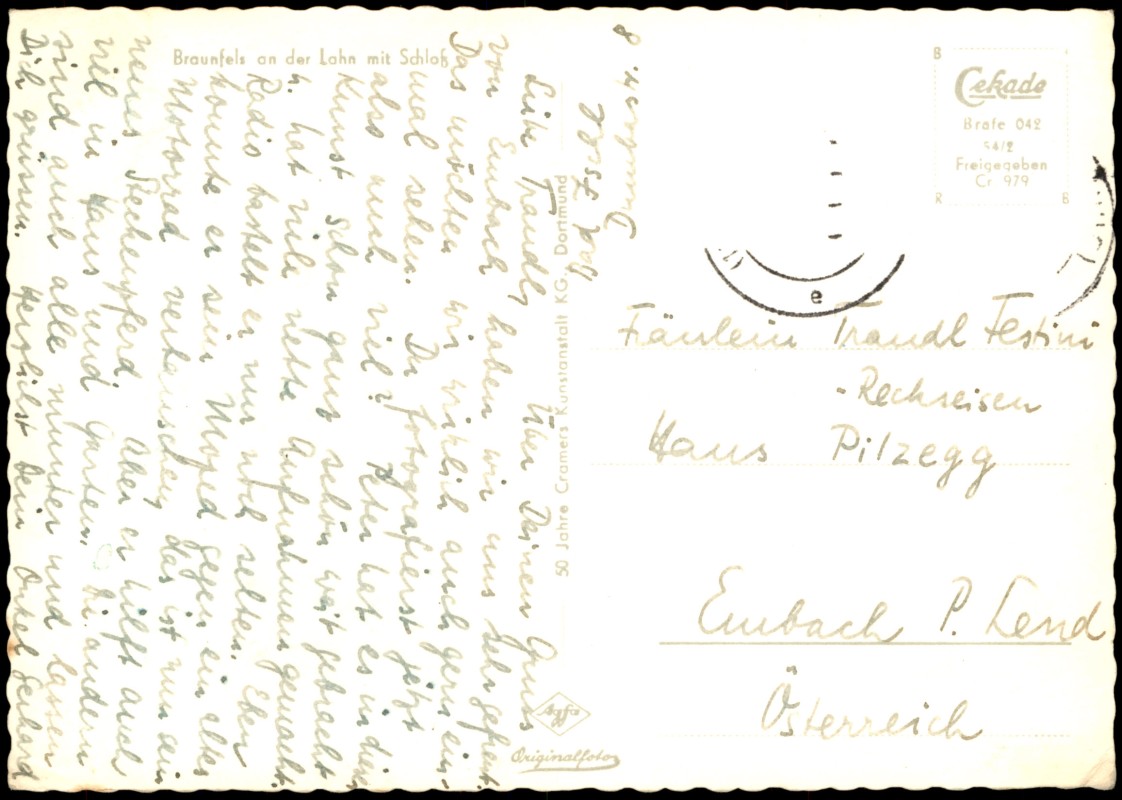 Braunfels an der Lahn mit Schloß
Bad Essele
Dümberstr. 8
Liebe Traudl, Über Deinen Gruss
von Embach haben wir uns sehr gefreut.
Das möchten wir wirklich auch gern ein-
mal sehen. Du fotografierst jetzt
also auch viel? Peter hat es in dieser
Kunst schon ganz schön weit gebracht
u. hat viele nette Aufnahmen gemacht.
Radio bastelt er nur noch selten. Eben
konnte er sein Moped gegen ein altes
Motorrad vertauschen, das ist nun sein
neues Steckenpferd. Aber er hilft auch
viel in Haus und Garten. Die andern
sind auch alle munter und lassen
Dich grüssen. Herzlichst Dein Onkel Gerhard
50 Jahre Cramers Kunstanstalt KG., Dortmund
Agfa
Originalfoto
B
Cekade
Brafe 042
54/2
Freigegeben
Cr 979
R B
e
Fräulein Traudl Festini
-Rechseisen
Haus Pilzegg
Embach P. Lend
Österreich